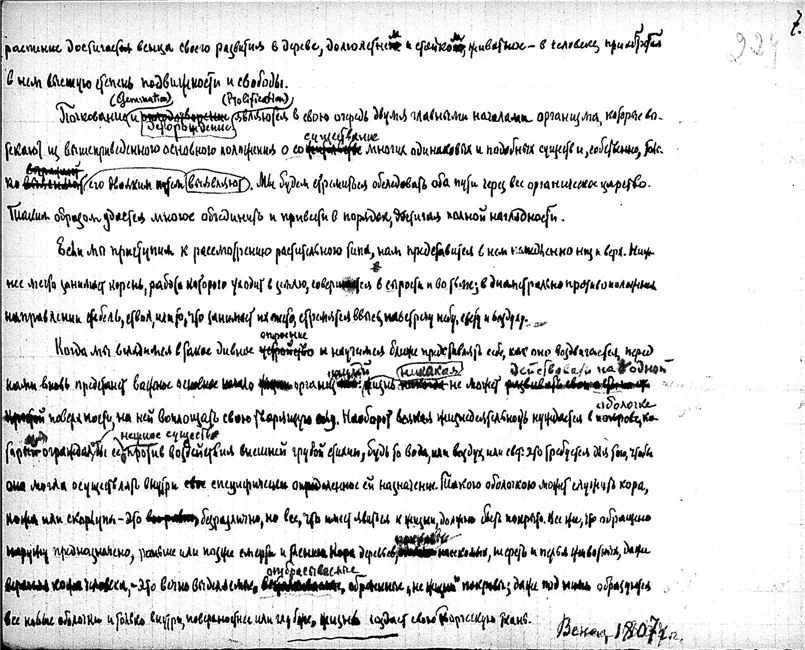 7.
224
растение достигает венца своего развития в дереве, долголетним и стойком, животное – в человеке, приобретая
в нем высшую степень подвижности и свободы.
(Gemination) (Prolification)
Почкование и деторождение являются в свою очередь двумя главными началами организма, которые вы-
текают из вышеприведенного основного положения о существование многих одинаковых и подобных существ и, собственно,
его двояким путем выявляют). Мы будем стремиться обследовать оба пути через все органическое царство.
Таким образом удастся многое объединить и привести в порядок, достигая полной наглядности.
Если мы приступим к рассмотрению растительного типа, нам представится в нем немедленно низ и верх. Ниж-
нее место занимает корень, работа которого уходит в землю, совершается в сырости и во тьме; в диаметрально противоположном
направлении стебель, ствол, или то, что занимает их место, стремится ввысь, навстречу небу, свету и воздуху.
строение
Когда мы вглядимся в такое дивное и научимся ближе представлять себе, как оно воздвигается, перед
никакая действовать на одной
нами вновь предстанет важное основное начало организаций: жизнь не может
оболочке
поверхности, на ней воплощать свою творящую силу. Наоборот всякая жизнедеятельность нуждается в
нежное существо
ограждал бы ее против воздействия внешней грубой стихии, будь то вода, или воздух или свет. Это требуется для того, чтобы
она могла осуществлять внутри специфически определенное ей назначение. Такого оболочкою может служить кора,
кожа или скорлупа – это безразлично, но все, что имеет явиться к жизни, должно быть покрыто. Все же, что обращено
наружу предназначено, раньше или позже смерти и тлению. Кора деревьев, насекомых, шерсть и перья животных, даже
отбрасываемые
кожа человека, – это вечно выделяемые, обреченные „не жизни" покровы; даже под ними образуются
все новые оболочки и только внутри, поверхностнее или глубже, жизнь создает свою творческую ткань.
Венец, 1807 г.